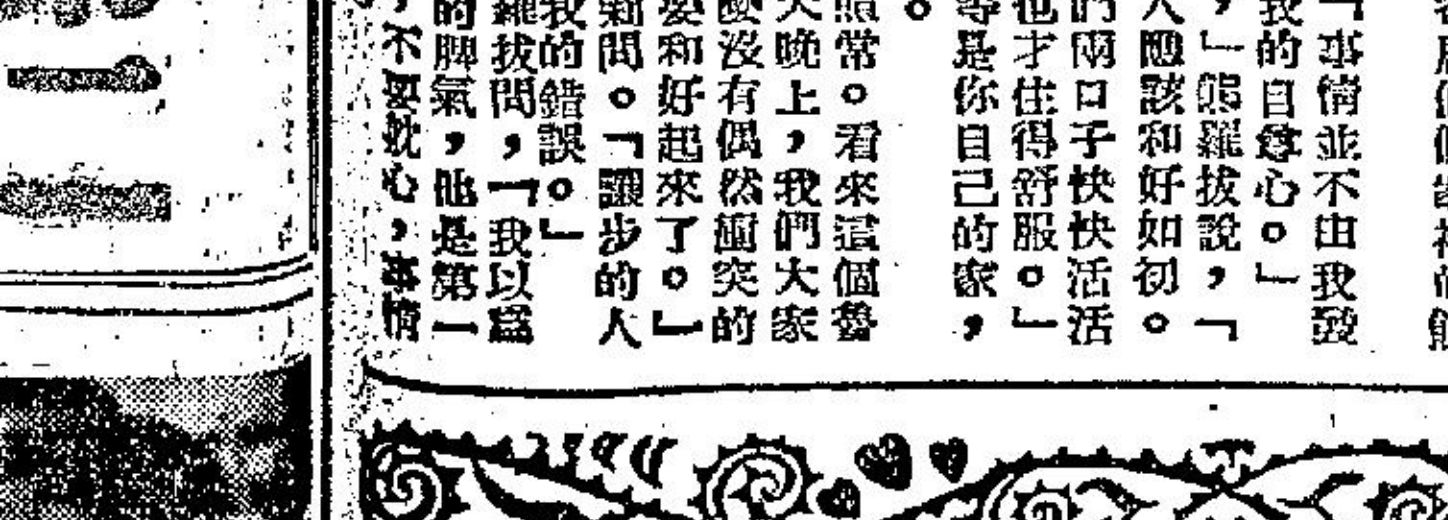 「事情並不由我發
我的自尊心。」
，」熊羅拔說，「
人應該和好如初。
們兩口子快快活活
也才住得舒服。」
等是你自己的家，
。
照常。看來這個
天晚上，我們大家
麼沒有偶然衝突的
要和好起來了。」
新聞。「讓步的人
我的錯誤。」
羅拔問，「我以為
的脾氣，他是第一
，不要躭心，事情